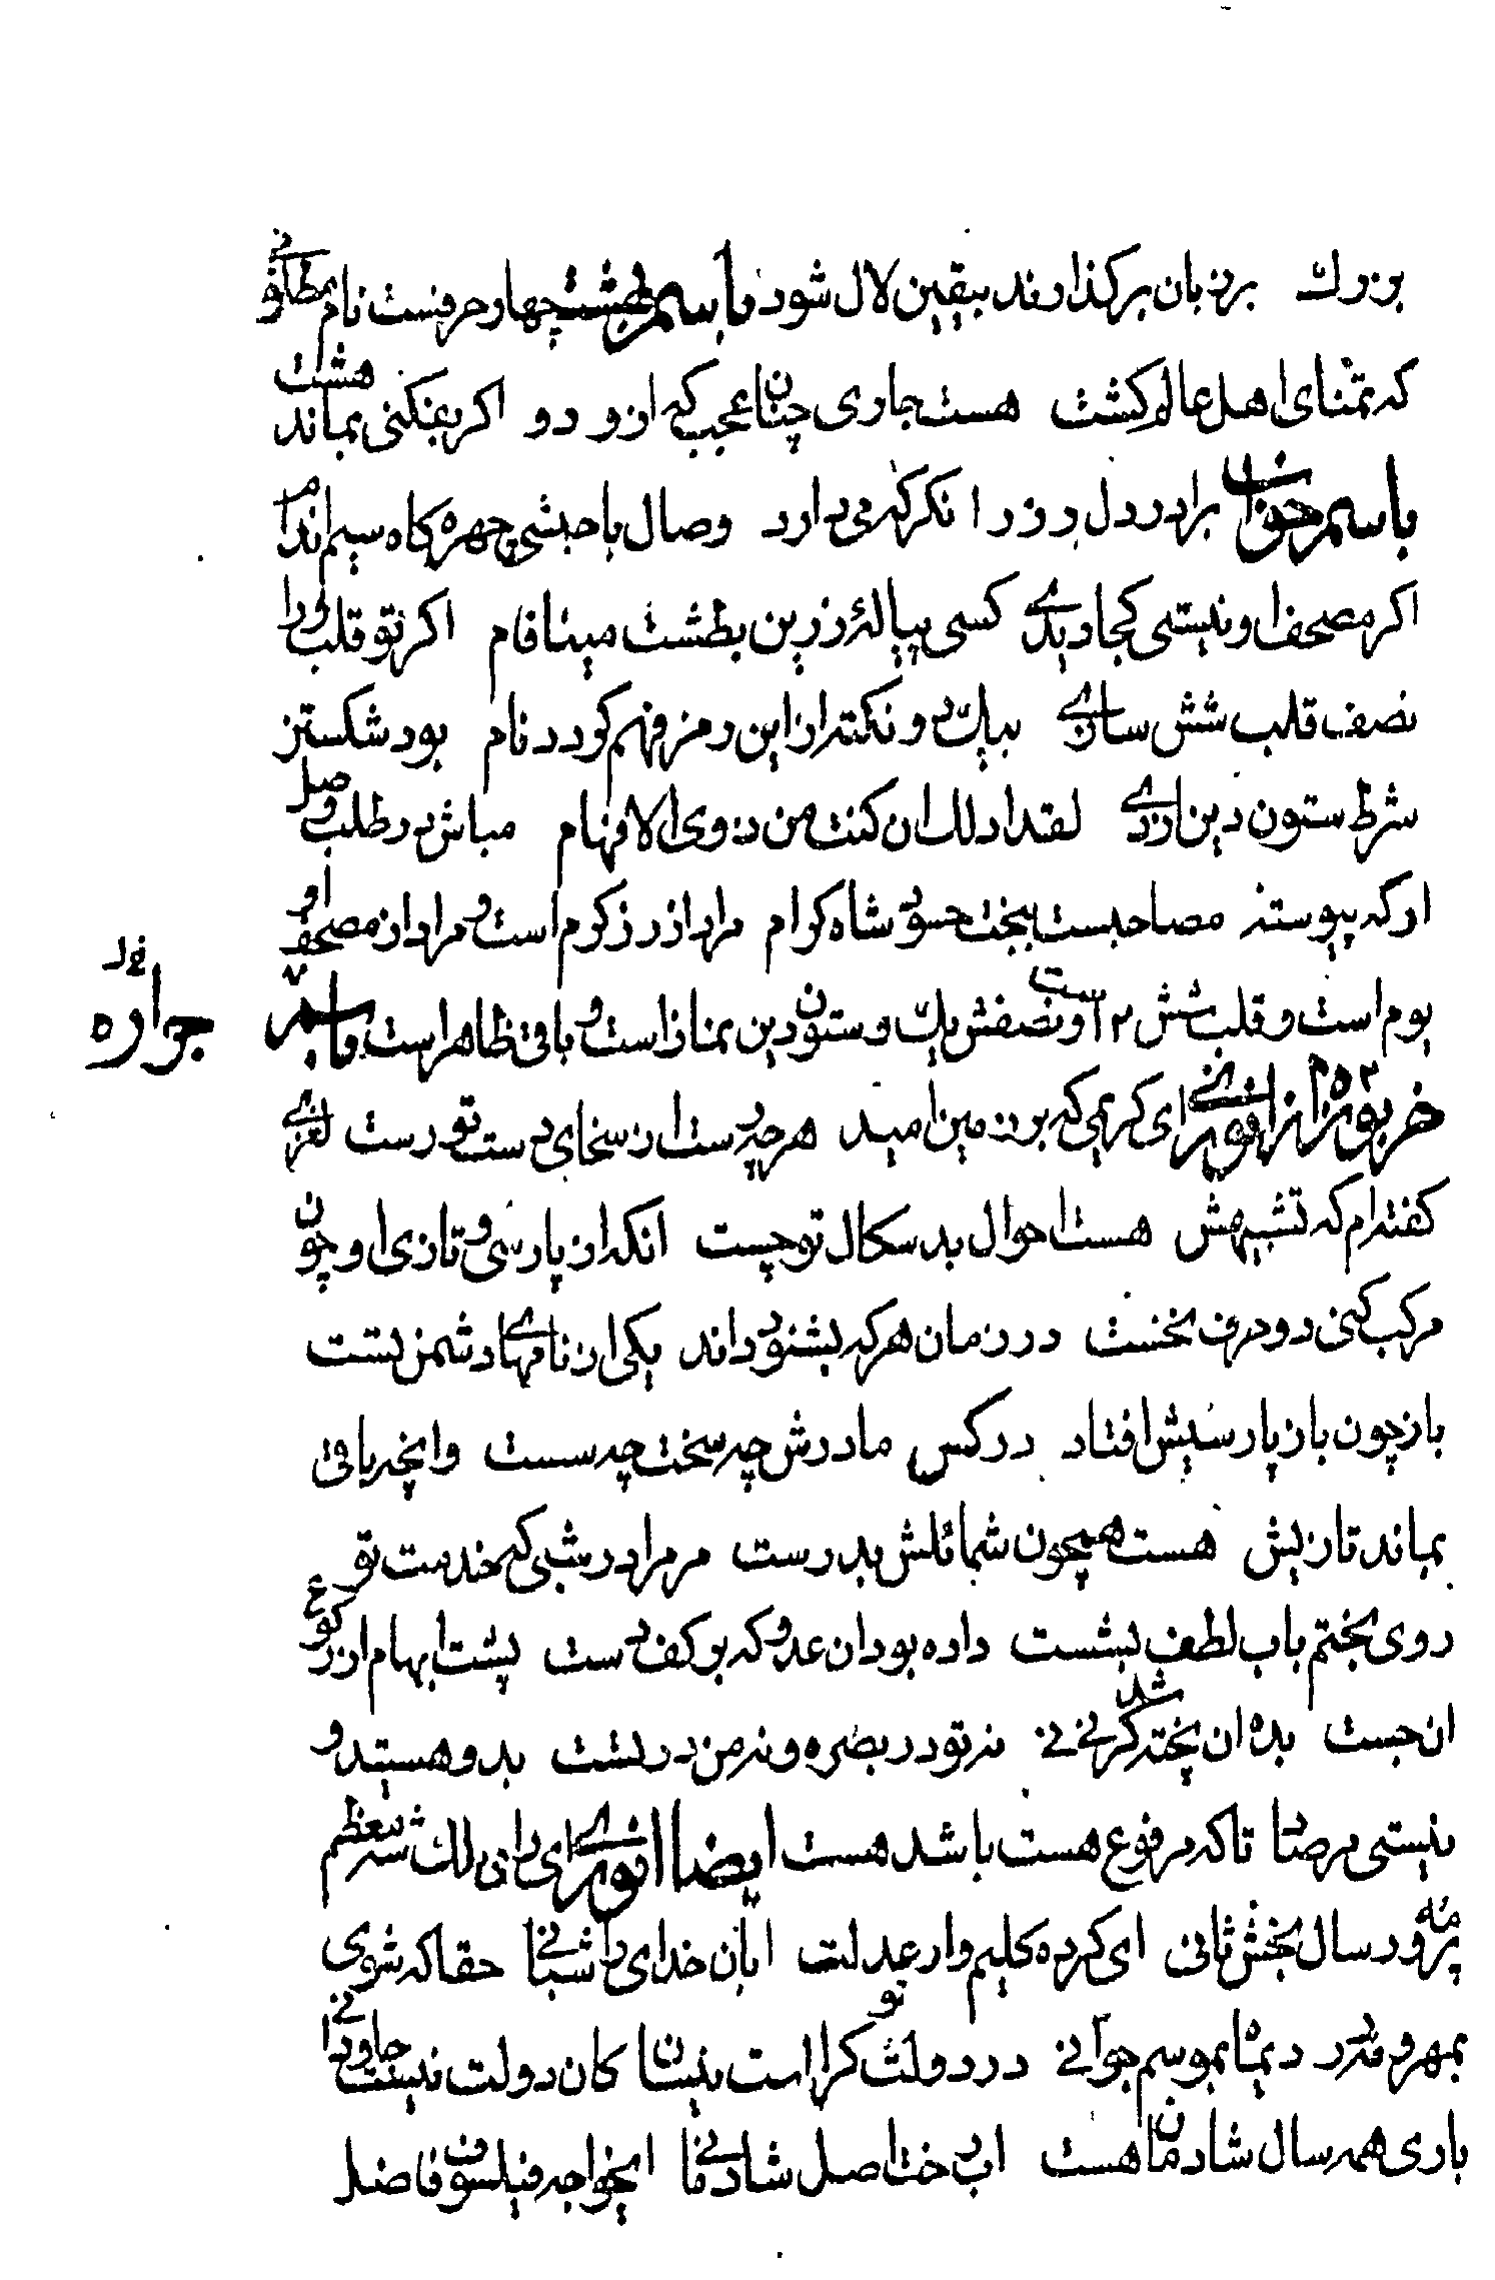 بزرك برزبان برکذارند بیقین لال شود باسم بهشت چهار حرفست نام مطلق
که تمنای اهل عالم کشت هست جاری چنان عجب که ازو دو اکر بفکنی بماند هشت
باسم خوان برادر دل رز را نکر که می دارد وصال باحبشی چهره کاه سیم اندام
اکر مصحف او نیستی کجا دیدی کسی پیالۀ زرین بطشت مینافام اکر تو قلب ورا
نصف قلب شش سازی بیك دو نکته ازاین رمز فهم کردد نام بود شکستن
شرط ستون دین ازدی لقد ادلك ان کنت من ذوی الافهام مباش در طلب وصل
ار که پیوسته مصاحبست ببخت حسود شاه کرام مراد از رز کرم است و مراد از مصحف او
یوم است و قلب شش ۲ است و نصفش یك و ستون دین نماز است و باقی ظاهر است باسم
خربوزه از انوری ای کریمی که بر زمین امید هرچه رست از سخای دست تو رست لغزی
کفته ام که تشبیهش هست احوال بد سکال تو چست انکه از پارسی و تازی او چون
مرکب کنی دو حرف نخست در زمان هر که بشنود داند یکی از نامهای دشمن تست
باز چون باز پارسیش افتاد در کس مادرش چه سخت چه سست وانچه باقی
بماند تازیش هست همچون شمائلش بدرست مر مرا در شبی که خدمت تو
روی بختم باب لطف بشست داده بود ان عدو که بر کف دست پشت ابهام از رکوع
ان جست بده ان پخته شد کرنی نی نه تو در بصره و نه من در بست بد و هستند و
نیستی مرصاد تا که مرفوع هست باشد هست ایضا انوری ای رای ملك شه معظم
پرورده سال بخش ثانی ای کرده کلیم وار عدلت ابان خدای را شبانی حقا که شوی
بمهر و قدر دیماه بموسم جوانی در دولت تو کراست نیسان کان دولت نیست جاودانی
باری همه سال شادمان هست اب درخت اصل شادمانی ایخواجه فیلسوف فاضل
جواره